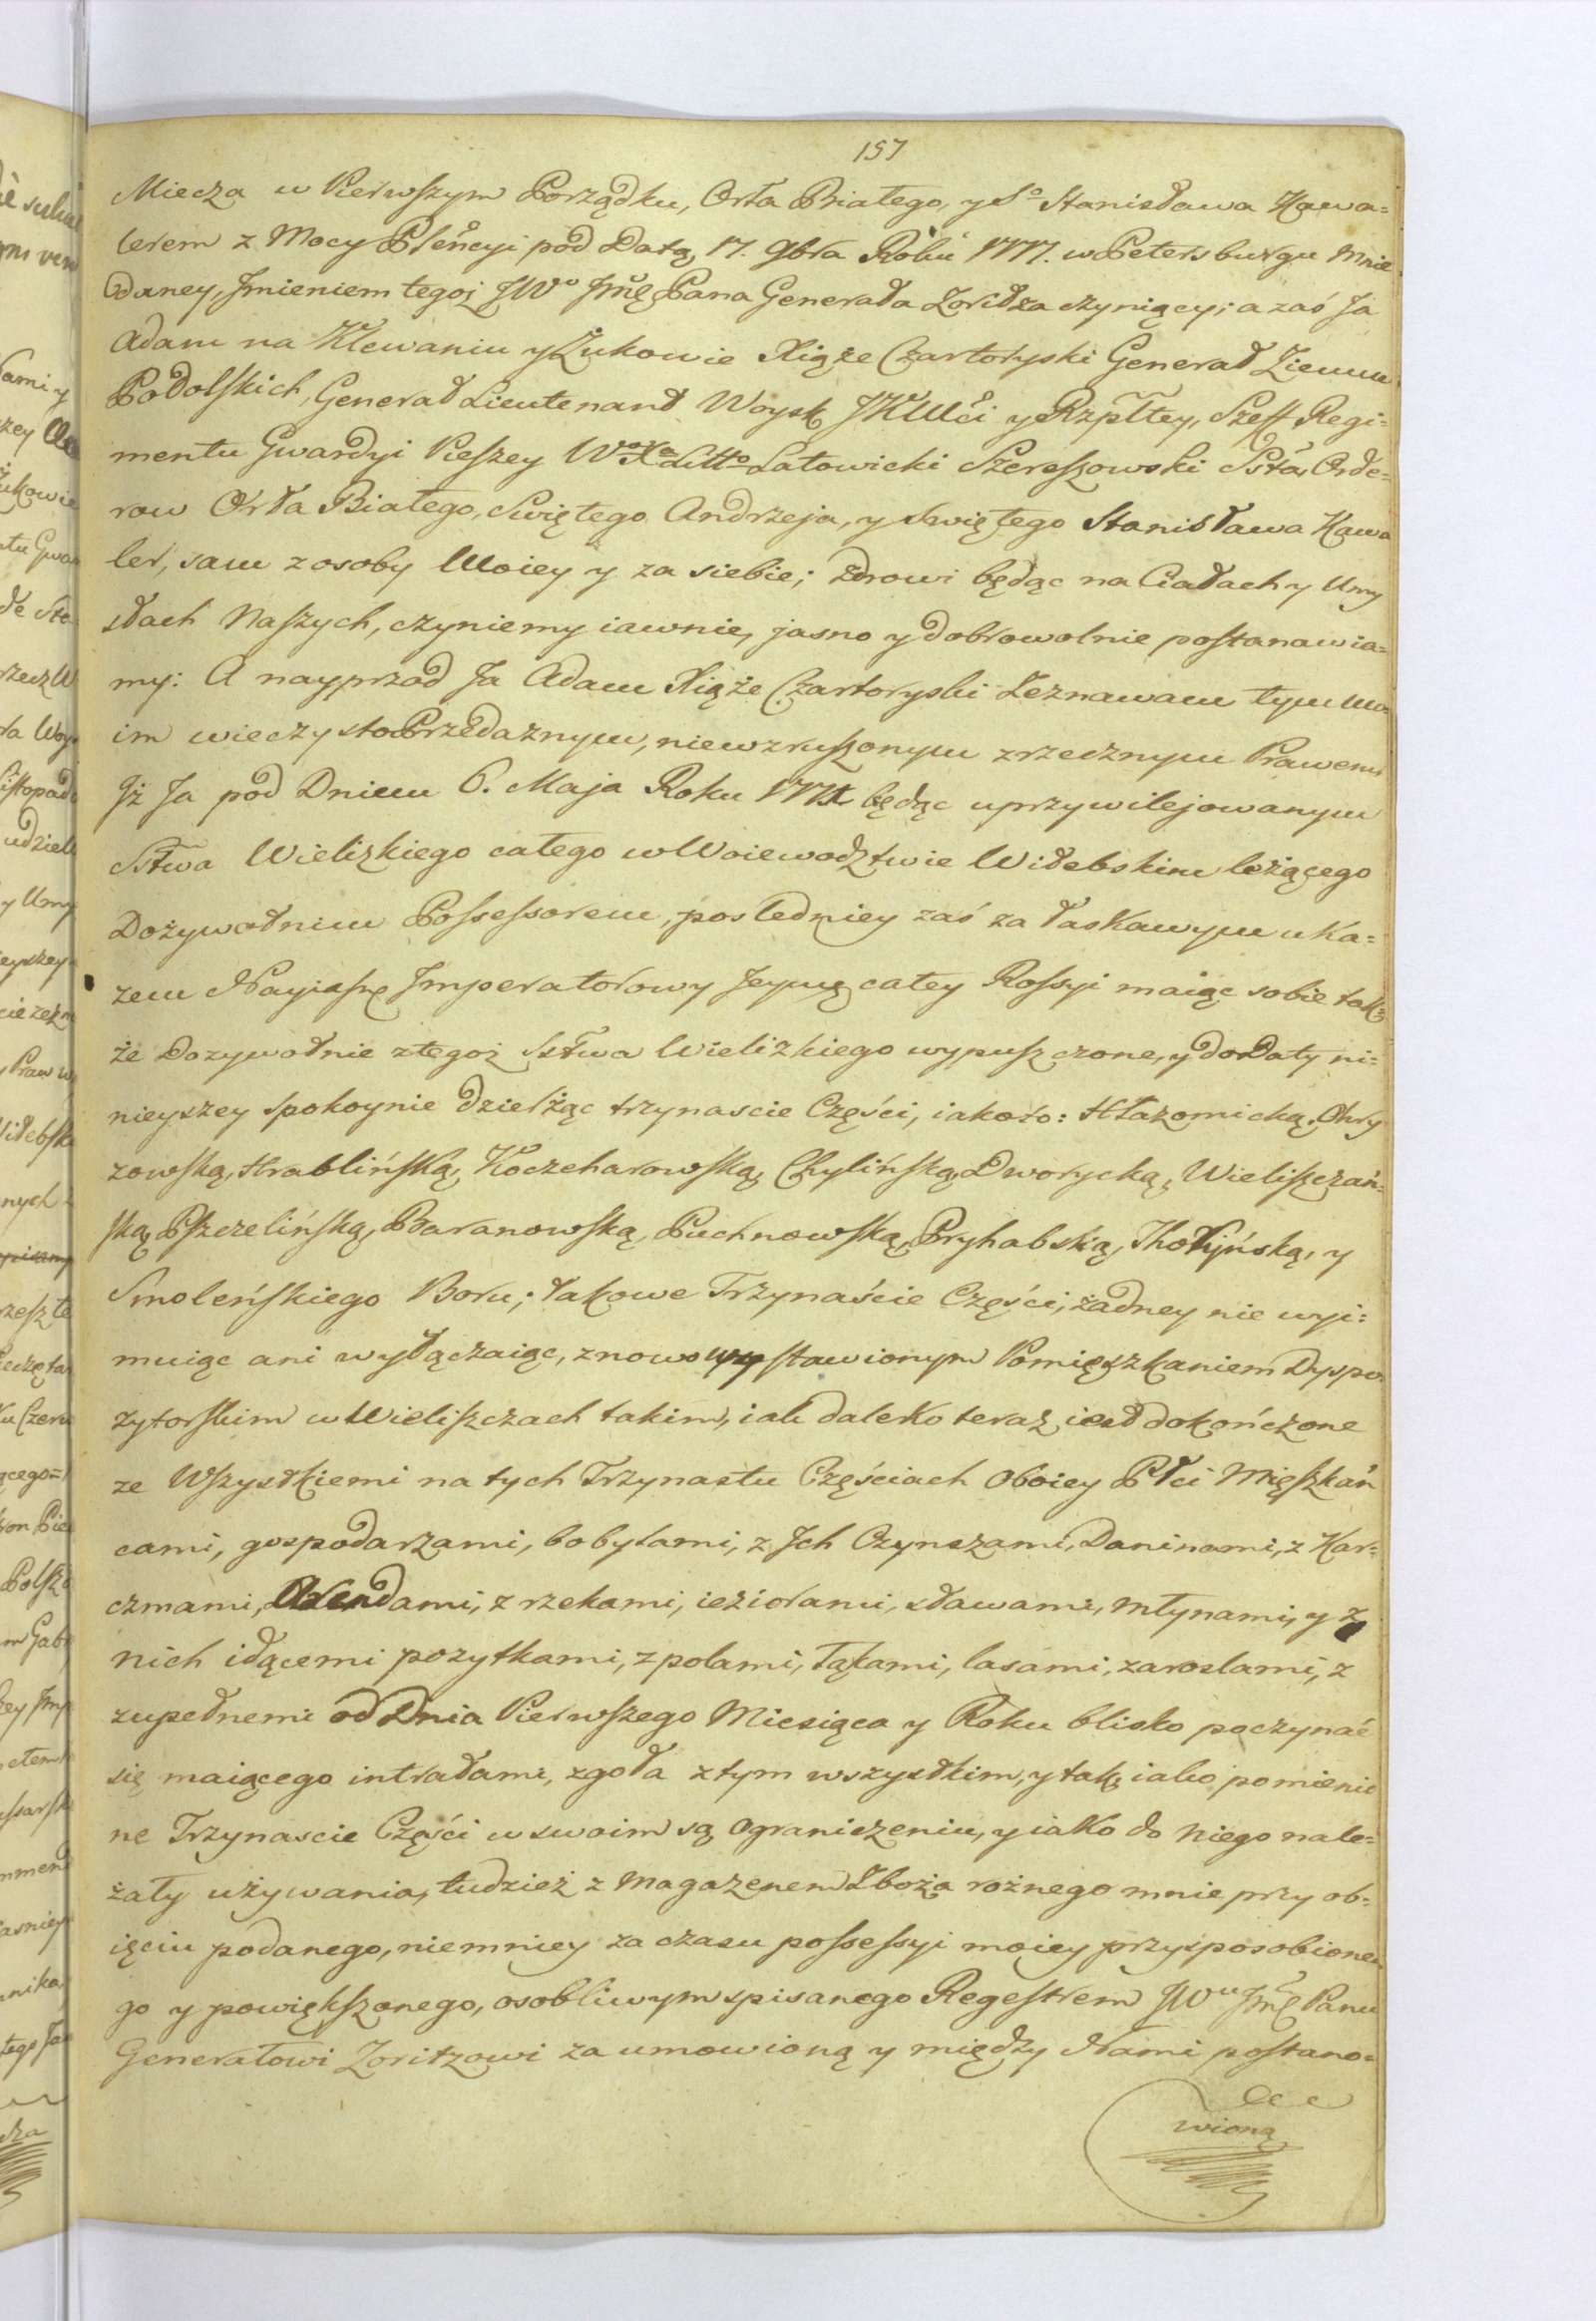 157
Miecza w Pierwszym Porządku, Orła Białego, y So Stanisława Kawa=
lerem z Mocy Pleńcyi pod Datą 17. 9bra Roku 1777. w Petersburgu Mnie
Daney, Jmieniem tegoż JWo Jmę Pana Generała Zoritza czyniący; a zaś Ja
Adam na Klewaniu y Żukowie Xiąże Czartoryski Generał Ziemm
Podolskich, Generał Lieutenant Woysk JKMci y Rzpltey, Szeff Regi=
mentu Gwardyi Pieszey Wo Xa Litto Latowicki Szereszowski Ssta, Orde=
row Orła Białego, Swiętego Andrzeja, y Swiętego Stanisława Kawa
ler, sam z osoby Moiey y za siebie; zdrowi będąc na Ciałach y Umy
słach Naszych, czyniemy iawnie, jasno y dobrowolnie postanawia=
my: A nayprzod Ja Adam Xiąże Czartoryski Zeznawam tym mo
im wieczysto Przedaznym, niewzruszonym zrzecznym Prawem
Jż Ja pod Dniem 6. Maja Roku będąc uprzywilejowanym
Sstwa Wielizkiego całego w Woiewodztwie Witebskim leżącego
Dożywotnim Possessorem, posledniey zaś za łaskawym uka=
zem Nayiasnę Jmperatorowy Jeymę całey Rossyi maiąc sobie tak
że Dozywotnie z tegoż Sstwa Wielizkiego wypuszczone, y do Daty ni=
nieyszey spokoynie dzierżąc trzynascie Części, iako to: Hłazomicką, Chry
zowską, Hrablińską, Koczeharowską, Chylińską, Dworycką, Wieliszczań=
ską, Pszczelińską, Baranowską, Puchnowską, Pryhabską, y
Smoleńskiego Boru; takowe Trzynaście Części, żadney nie wyi=
muiąc ani wyłączaiąc, z nowo wystawionym Pomięszkaniem Dyspo
zytorskim w Wieliszczach takim, iak daleko teraz iest dokończone
ze Wszystkiemi na tych Trzynastu Częściach oboiey Płci Mięszkań
cami, gospodarzami, bobylami, z Jch Czynszami, Daninami, z Kar=
czmami, Arendami, z rzekami, ieziorami, stawami, młynami, y z
nich idącemi pozytkami, z polami, łąkami, lasami, zaroslami, z
zupełnemi od Dnia Pierwszego Miesiąca y Roku blisko poczynać
się maiącego intratami, zgoła z tym wszystkim, y tak, iako pomienio
ne Trzynascie Części w swoim są ograniczeniu, y iako do niego nale=
żały używania, tudzież z Magazenem Zboża rożnego mnie przy ob=
ięciu podanego, niemniey za czasu possessyi moiey przysposobione
go y powiększonego, osobliwym spisanego Regestrem JWu Jmę Panu
Generałowi Zoritzowi za umowioną y między Nami postano=
wioną